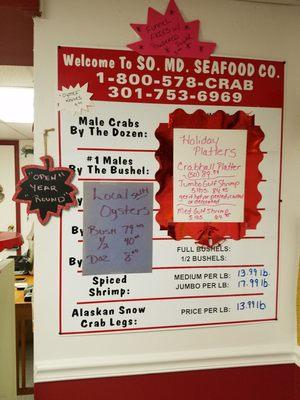 Funnel
Fries w/
Powdered
Sugar
Welcome To SO. MD. SEAFOOD CO.
1-800-578-CRAB
301-753-6969
OYSTER
KNIVES
Male Crabs
By The Dozen:
#1 Males
By The Bushel:
By
By
By
Holiday
Platters
Crabhall Platter
Jumbo Gulf Shrimp
5 lbs
Med Gulf Shrimp
5 lbs
"OPEN"
YEAR
'ROUND
Local
Oysters
Bush 79.00
1/2 40.00
Doz 8.00
FULL BUSHELS:
1/2 BUSHELS:
Spiced
Shrimp:
MEDIUM PER LB: 13.99 lb
JUMBO PER LB: 17.99 lb
Alaskan Snow
Crab Legs:
PRICE PER LB: 13.99 lb